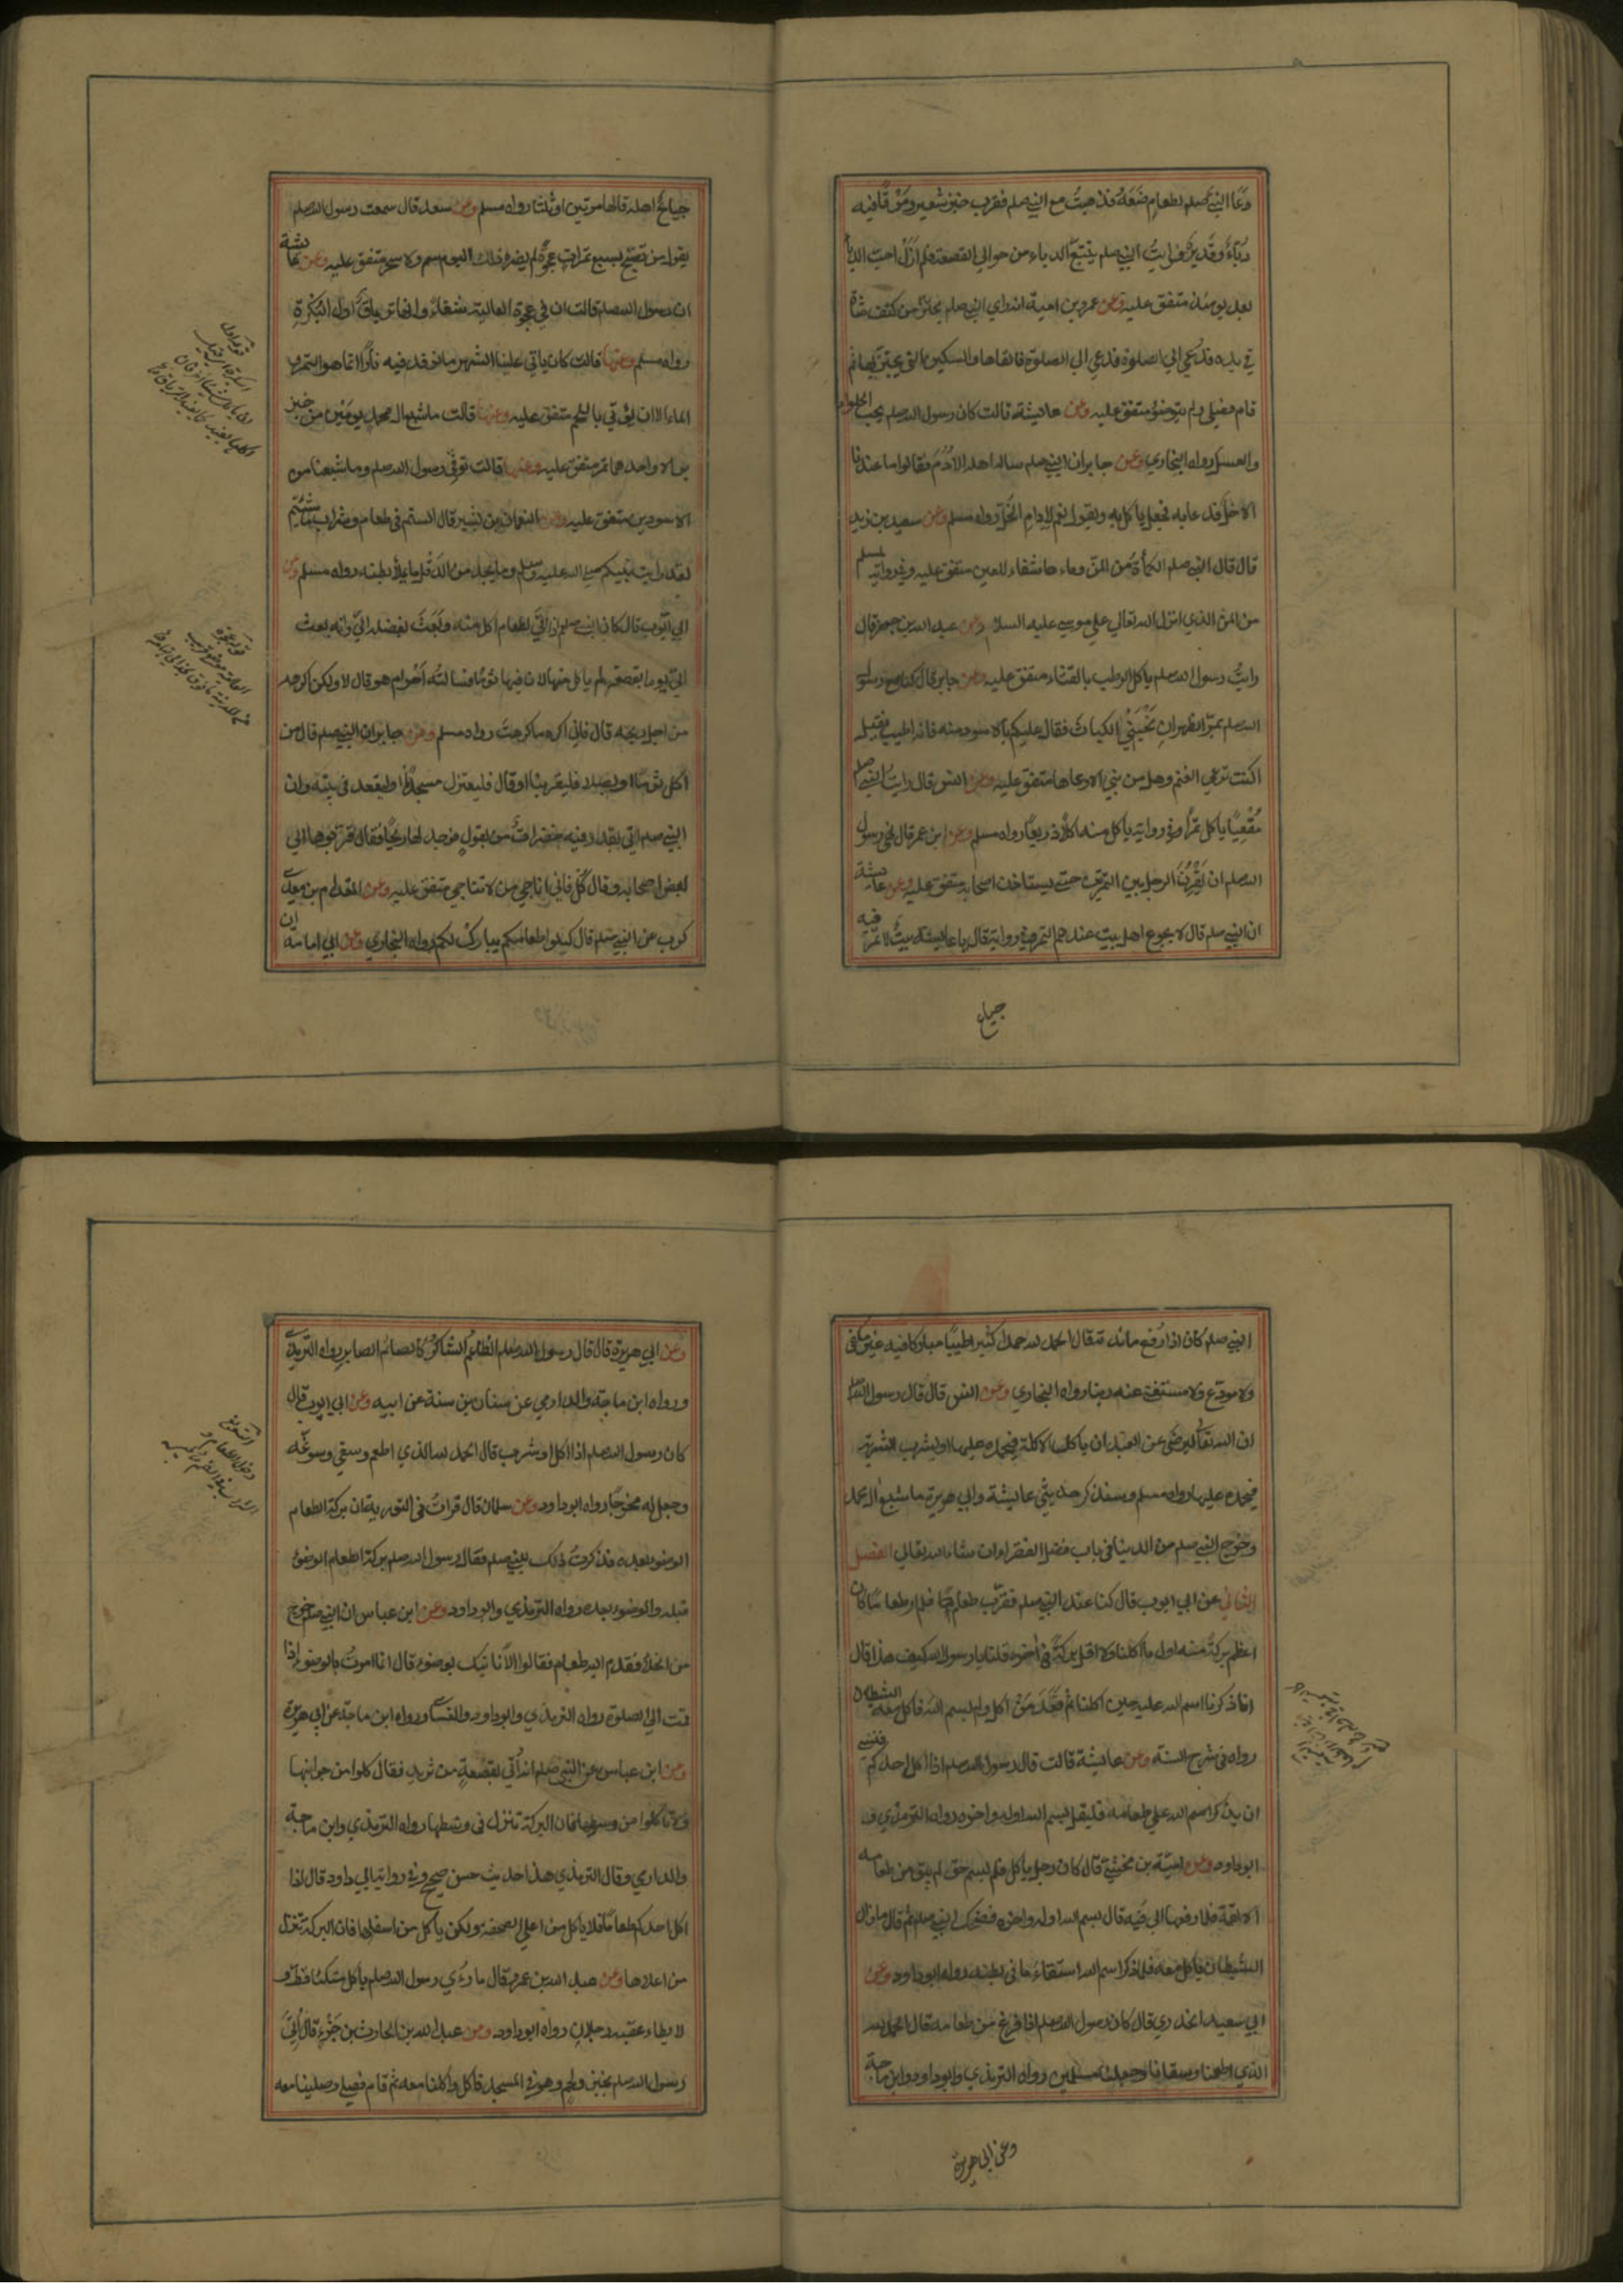 دعا النبي صلعم لطعام صنعه فذهبت مع النبي صلعم فقرب خبز شعير ومرقا فيه
دباء وقديد فرايت النبي صلعم يتتبع الدباء من حوالي القصعة فلم ازل احب الدباء
بعد يومئذ متفق عليه وعن عمرو بن امية انه راي النبي صلعم يحتز من كتف شاة
في يده فدعي الي الصلوة فالقاها والسكين التي يحتز بها ثم
قام فصلي ولم يتوضؤ متفق عليه وعن عايشة قالت كان رسول الله صلعم يحب الحلواء
والعسل رواه البخاري وعن جابر ان النبي صلعم سال اهله الادم فقالوا ما عندنا
الا خل فدعا به فجعل ياكل به ويقول نعم الادام الخل رواه مسلم وعن سعيد بن زيد
قال قال النبي صلعم الكمأة من المن وماءها شفاء للعين متفق عليه وفي رواية لمسلم
من المن الذي انزل الله تعالي علي موسي عليه السلام وعن عبد الله بن جعفر قال
رايت رسول الله صلعم ياكل الرطب بالقثاء متفق عليه وعن جابر قال كنا مع رسول
الله صلعم بمر الظهران نجني الكباث فقال عليكم بالاسود منه فانه اطيب فقيل
اكنت ترعي الغنم وهل من نبي الا رعاها متفق عليه وعن انس قال رايت النبي صلعم
مقعيا ياكل تمرا وفي رواية ياكل منه اكلا ذريعا رواه مسلم وعن ابن عمر قال نهي رسول
الله صلعم ان يقرن الرجل بين التمرتين حتي يستاذن اصحابه متفق عليه وعن عايشة
ان النبي صلعم قال لا يجوع اهل بيت عندهم التمر وفي رواية قال يا عايشة بيت لا تمر فيه
جياع
جياع اهله قالها مرتين او ثلثا رواه مسلم وعن سعد قال سمعت رسول الله صلعم
يقول من تصبح بسبع تمرات عجوة لم يضره ذلك اليوم سم ولا سحر متفق عليه وعن عايشة
ان رسول الله صلعم قالت ان في عجوة العالية شفاء وانها ترياق اول البكرة
رواه مسلم وعنها قالت كان ياتي علينا الشهر ما نوقد فيه نارا انما هو التمر و
الماء الا ان يؤتي باللحم متفق عليه وعنها قالت ما شبع ال محمد يومين من خبز
بر الا واحدهما تمر متفق عليه وعنها قالت توفي رسول الله صلعم وما شبعنا من
الاسودين متفق عليه وعن النعمان بن بشير قال الستم في طعام وشراب ما شئتم
لقد رايت نبيكم صلي الله عليه وسلم وما يجد من الدقل ما يملأ بطنه رواه مسلم وعن
ابي ايوب قال كان النبي صلعم اذا اتي بطعام اكل منه وبعث بفضله الي وانه بعث
الي يوما بقصعة لم ياكل منها لان فيها ثوما فسالته احرام هو قال لا ولكن اكرهه
من اجل ريحه قال فاني اكره ما كرهت رواه مسلم وعن جابر ان النبي صلعم قال من
اكل ثوما او بصلا فليعتزلنا او قال فليعتزل مسجدنا او ليقعد في بيته وان
النبي صلعم اتي بقدر فيه خضرات من بقول فوجد لها ريحا فقال قربوها الي
بعض اصحابه وقال كل فاني اناجي من لا تناجي متفق عليه وعن المقدام بن معدي
كرب عن النبي صلعم قال كيلوا طعامكم يبارك لكم رواه البخاري وعن ابي امامة ان
النبي صلعم كان اذا رفع مائدته قال الحمد لله حمدا كثيرا طيبا مباركا فيه غير مكفي
ولا مودع ولا مستغني عنه ربنا رواه البخاري وعن انس قال قال رسول الله صلعم
ان الله تعالي ليرضي عن العبد ان ياكل الاكلة فيحمده عليها او يشرب الشربة
فيحمده عليها رواه مسلم وسنذكر حديثي عايشة وابي هريرة ما شبع ال محمد
وخرج النبي صلعم من الدنيا في باب فضل الفقراء ان شاء الله تعالي الفصل
الثاني عن ابي ايوب قال كنا عند النبي صلعم فقرب طعام فلم ار طعاما كان
اعظم بركة منه اول ما اكلنا ولا اقل بركة في اخره قلنا يا رسول الله كيف هذا قال
انا ذكرنا اسم الله عليه حين اكلنا ثم قعد من اكل ولم يسم الله فاكل معه الشيطان
رواه في شرح السنة وعن عايشة قالت قال رسول الله صلعم اذا اكل احدكم فنسي
ان يذكر اسم الله علي طعامه فليقل بسم الله اوله واخره رواه الترمذي و
ابو داود وعن امية بن مخشي قال كان رجل ياكل فلم يسم حتي لم يبق من طعامه
الا لقمة فلما رفعها الي فيه قال بسم الله اوله واخره فضحك النبي صلعم ثم قال ما زال
الشيطان ياكل معه فلما ذكر اسم الله استقاء ما في بطنه رواه ابو داود وعن
ابي سعيد الخدري قال كان رسول الله صلعم اذا فرغ من طعامه قال الحمد لله
الذي اطعمنا وسقانا وجعلنا مسلمين رواه الترمذي وابو داود وابن ماجة
وعن ابي هريرة
وعن ابي هريرة قال قال رسول الله صلعم الطاعم الشاكر كالصائم الصابر رواه الترمذي
ورواه ابن ماجة والدارمي عن سنان بن سنة عن ابيه وعن ابي ايوب قال
كان رسول الله صلعم اذا اكل او شرب قال الحمد لله الذي اطعم وسقي وسوغه
وجعل له مخرجا رواه ابو داود وعن سلمان قال قرات في التورية ان بركة الطعام
الوضوء بعده فذكرت ذلك للنبي صلعم فقال رسول الله صلعم بركة الطعام الوضوء
قبله والوضوء بعده رواه الترمذي وابو داود وعن ابن عباس ان النبي صلعم خرج
من الخلاء فقدم اليه طعام فقالوا الا ناتيك بوضوء قال انما امرت بالوضوء اذا
قمت الي الصلوة رواه الترمذي وابو داود والنسائي ورواه ابن ماجة عن ابي هريرة
وعن ابن عباس عن النبي صلعم انه اتي بقصعة من ثريد فقال كلوا من جوانبها
ولا تاكلوا من وسطها فان البركة تنزل في وسطها رواه الترمذي وابن ماجة
والدارمي وقال الترمذي هذا حديث حسن صحيح وفي رواية ابي داود قال اذا
اكل احدكم طعاما فلا ياكل من اعلي الصحفة ولكن ياكل من اسفلها فان البركة تنزل
من اعلاها وعن عبد الله بن عمرو قال ما رؤي رسول الله صلعم ياكل متكئا قط و
لا يطاء عقبه رجلان رواه ابو داود وعن عبد الله بن الحارث بن جزء قال اتي
رسول الله صلعم بخبز ولحم وهو في المسجد فاكل واكلنا معه ثم قام فصلي وصلينا معه